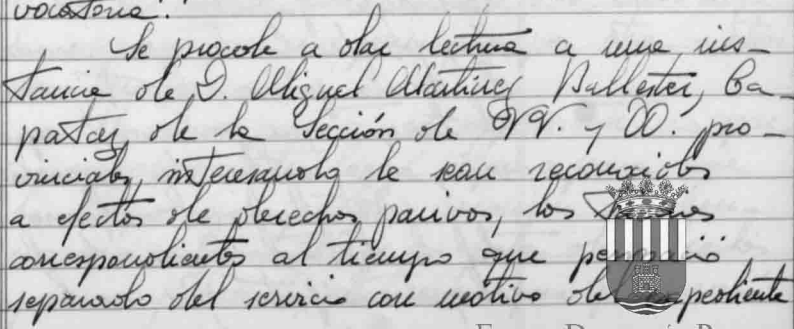 vocatoria.
Se procede a dar lectura a una ins-
tancia de D. Miguel Martínez Ballester, Ca-
pataz de la Sección de VV. y OO. pro-
vinciales, interesando le sean reconocidos
a efectos de derechos pasivos, los
correspondientes al tiempo que permaneció
separado del servicio con motivo del expediente